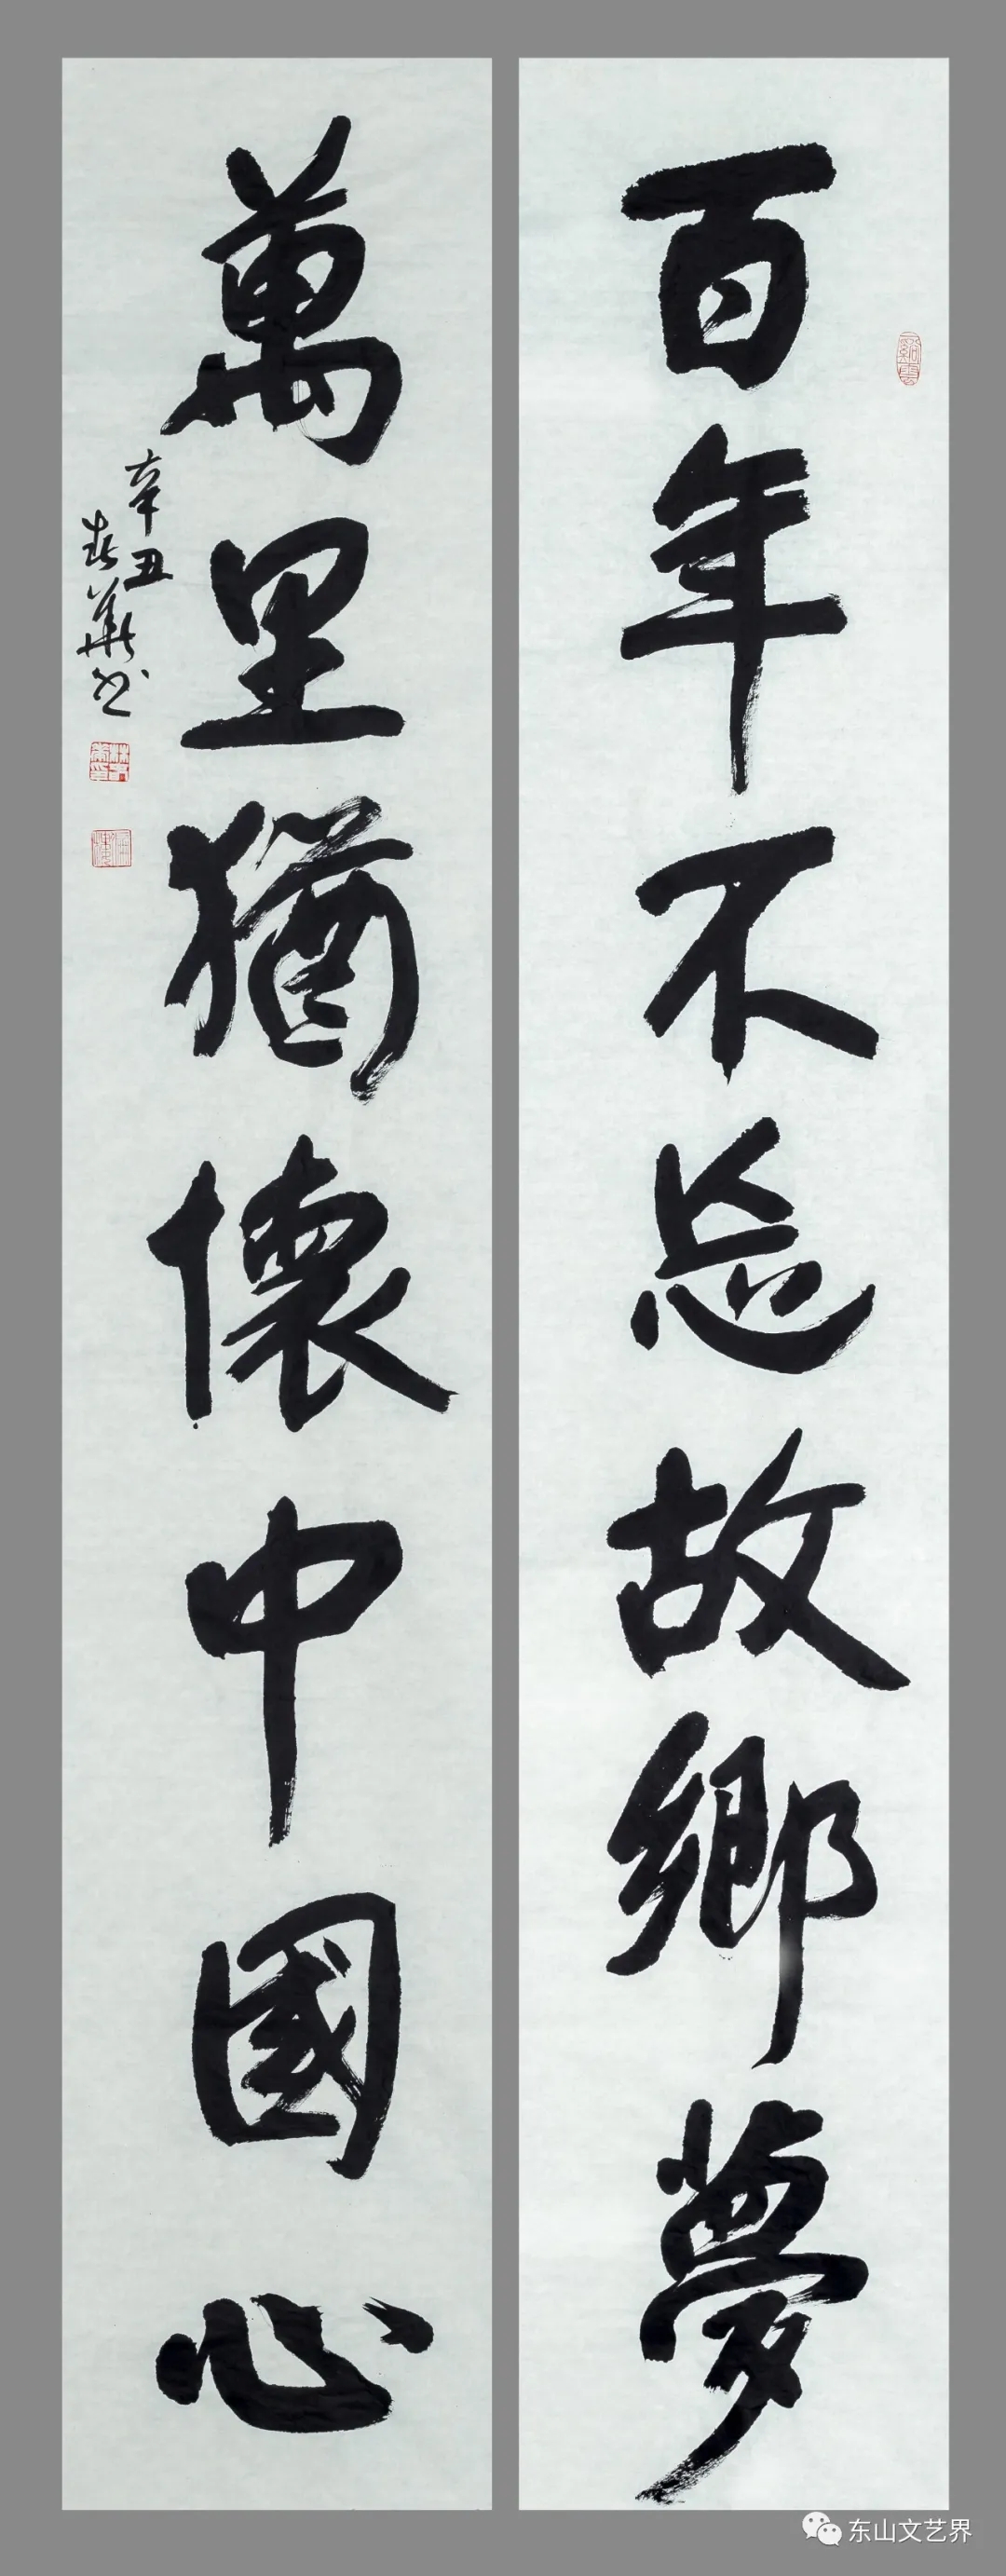 百年不忘故鄉夢
萬里猶懷中國心
辛丑
春華書
东山文艺界